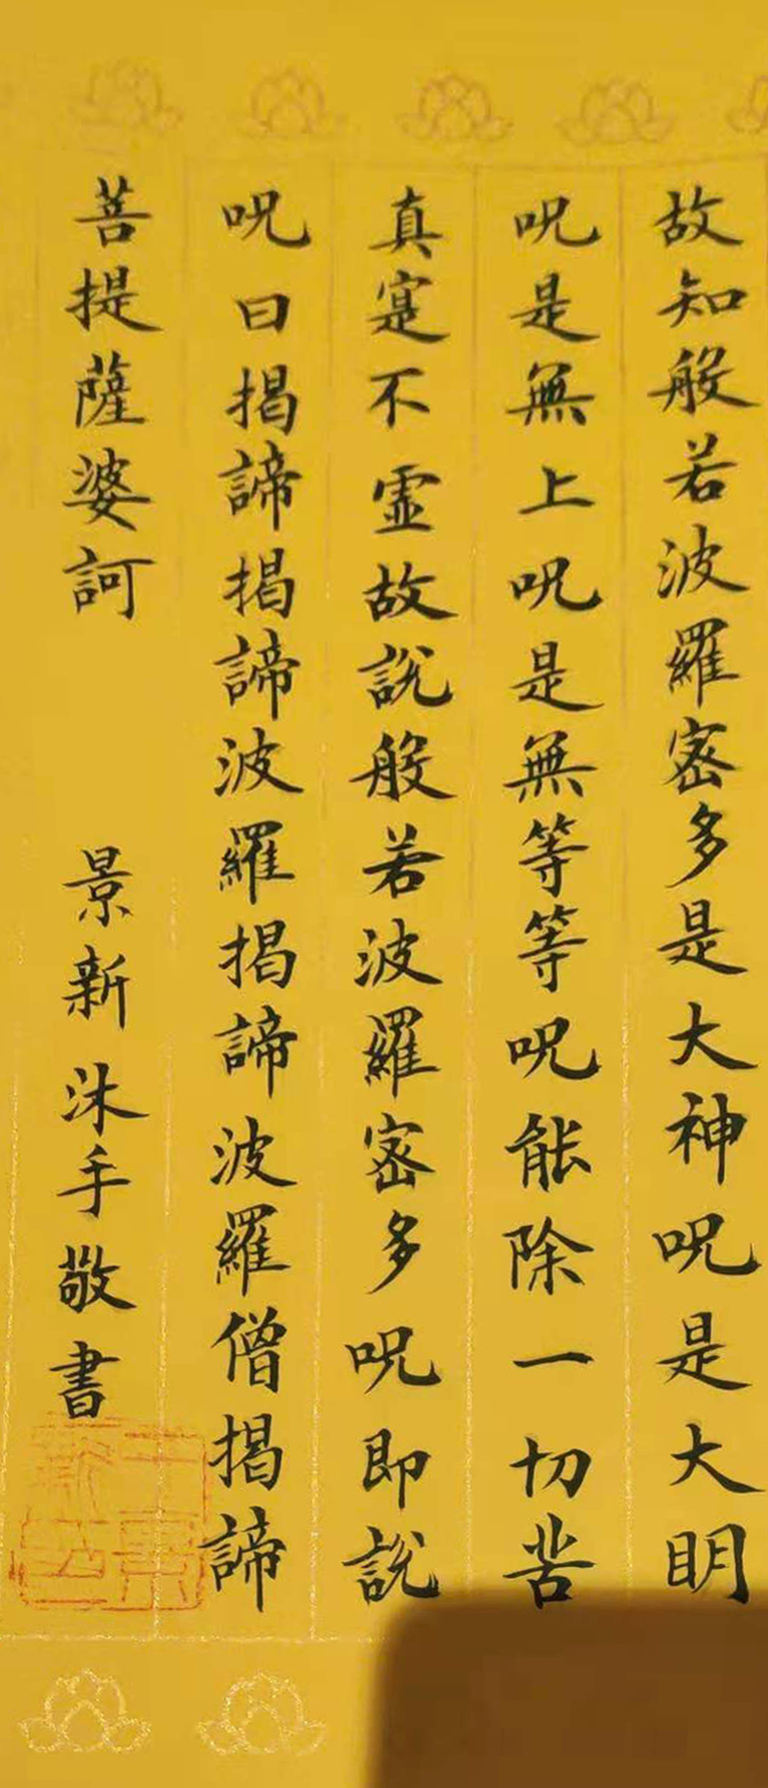 故知般若波羅蜜多是大神呪是大明
呪是無上呪是無等等呪能除一切苦
真寔不虛故說般若波羅蜜多呪即說
呪曰揭諦揭諦波羅揭諦波羅僧揭諦
菩提薩婆訶
景新沐手敬書